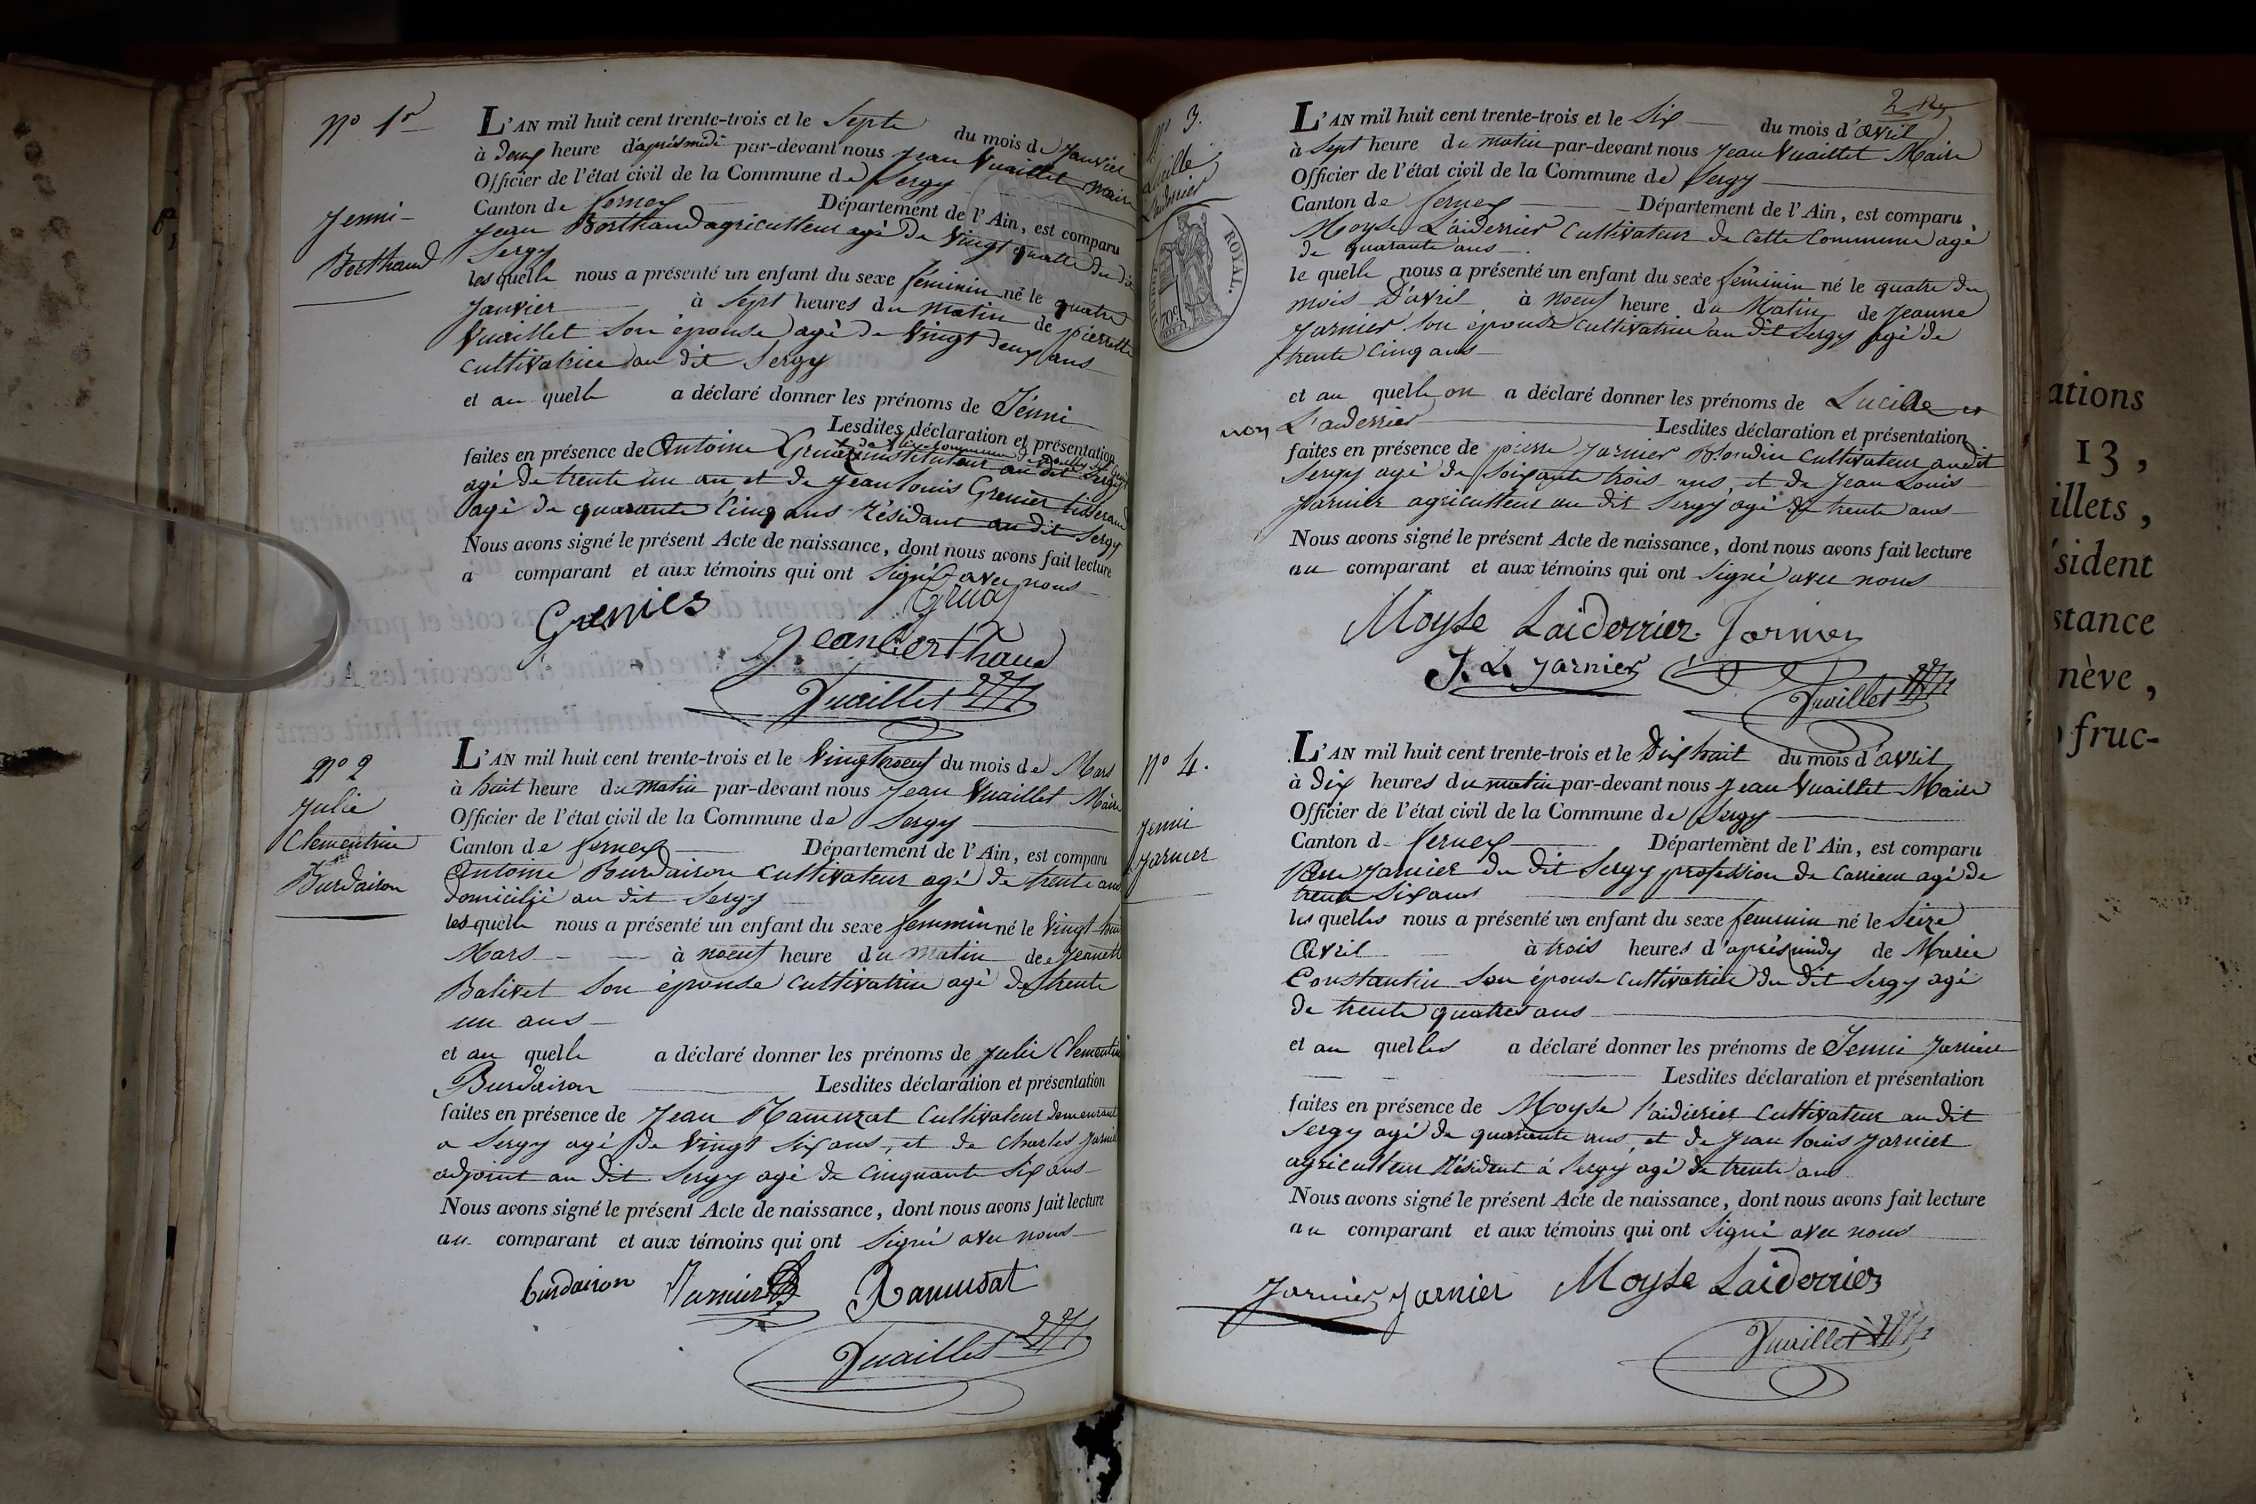 No 1er
Jenni
Berthaud
L'AN mil huit cent trente-trois et le Sept du mois de Janvier
à deux heure d'aprèsmidi par-devant nous Jean Vuaillet Maire
Officier de l'état civil de la Commune de Sergy
Canton de ferney Département de l'Ain, est comparu
Jean Berthaud agriculteur agé de Vingt quatre du dit
Sergy
les quelle nous a présenté un enfant du sexe féminin né le quatre
Janvier à Sept heures du matin de pierrette
Vuaillet Son épouse agé de Vingt deux ans
Cultivatrice au dit Sergy
et au quelle a déclaré donner les prénoms de Jénni
Lesdites déclaration et présentation
faites en présence de Antoine instituteur au dit Sergy
agé de trente un an et de Jean louis Grenier tisserand
agé de quarante Cinq ans Résidant au dit Sergy
Nous avons signé le présent Acte de naissance, dont nous avons fait lecture
a comparant et aux témoins qui ont Signé avec nous
Grenier
Jean Berthaud
Vuaillet
No 2
Julie
Clementine
Burdairon
L'AN mil huit cent trente-trois et le Vingtneuf du mois de Mars
à huit heure du matin par-devant nous Jean Vuaillet Maire
Officier de l'état civil de la Commune de Sergy
Canton de ferney Département de l'Ain, est comparu
Antoine Burdairon Cultivateur agé de trente ans
domicilié au dit Sergy
les quelle nous a présenté un enfant du sexe feminin né le Vingt huit
Mars à neuf heure du matin de Jeannette
Balivet Son épouse Cultivatrice agé de trente
un ans
et au quelle a déclaré donner les prénoms de Julie Clementine
Burdairon Lesdites déclaration et présentation
faites en présence de Jean Ramuzat Cultivateur demeurant
a Sergy agé de Vingt Six ans, et de Charles Jarnier
adjoint au dit Sergy agé de Cinquante Six ans
Nous avons signé le présent Acte de naissance, dont nous avons fait lecture
au comparant et aux témoins qui ont Signé avec nous
burdairon Jarnier Ramusat
Vuaillet
No 3.
Lucille
Laidernier
ROYAL.
L'AN mil huit cent trente-trois et le Six du mois d'avril
à Sept heure du matin par-devant nous Jean Vuaillet Maire
Officier de l'état civil de la Commune de Sergy
Canton de ferney Département de l'Ain, est comparu
Moyse Laiderrier Cultivateur de Cette Commune agé
de quarante ans
le quelle nous a présenté un enfant du sexe féminin né le quatre du
mois D'avril à neuf heure du Matin de Jeanne
Jarnier Son épouse Cultivatrice au dit Sergy agé de
trente Cinq ans
et au quelle on a déclaré donner les prénoms de Lucille et
non L'aiderrier Lesdites déclaration et présentation
faites en présence de pierre Jarnier Blondin Cultivateur audit
Sergy agé de Soixante trois ans et de Jean Louis
Jarnier agriculteur au dit Sergy agé de trente ans
Nous avons signé le présent Acte de naissance, dont nous avons fait lecture
au comparant et aux témoins qui ont Signé avec nous
Moyse Laiderrier Jarnier
J. L Jarnier
Vuaillet
No 4.
Jenni
Jarnier
L'AN mil huit cent trente-trois et le Dix huit du mois d'avril
à dix heures du matin par-devant nous Jean Vuaillet Maire
Officier de l'état civil de la Commune de Sergy
Canton d ferney Département de l'Ain, est comparu
Jarnier du dit Sergy profession de Carrieur agé de
trente Six ans
les quelles nous a présenté un enfant du sexe feminin né le Seize
Avril à trois heures d'aprèsmidy de Marie
Constantin Son épouse Cultivatrice du dit Sergy agé
de trente quatres ans
et au quelles a déclaré donner les prénoms de Jenni Jarnier
Lesdites déclaration et présentation
faites en présence de Moyse l'aiderrier Cultivateur au dit
Sergy agé de quarante ans et de Jean louis Jarnier
agriculteur Résident á Sergy agé de trente ans
Nous avons signé le présent Acte de naissance, dont nous avons fait lecture
au comparant et aux témoins qui ont Signé avec nous
Jarnier Jarnier Moyse Laiderrier
Vuaillet
ations
13,
illets,
sident
stance
nève,
fruc-